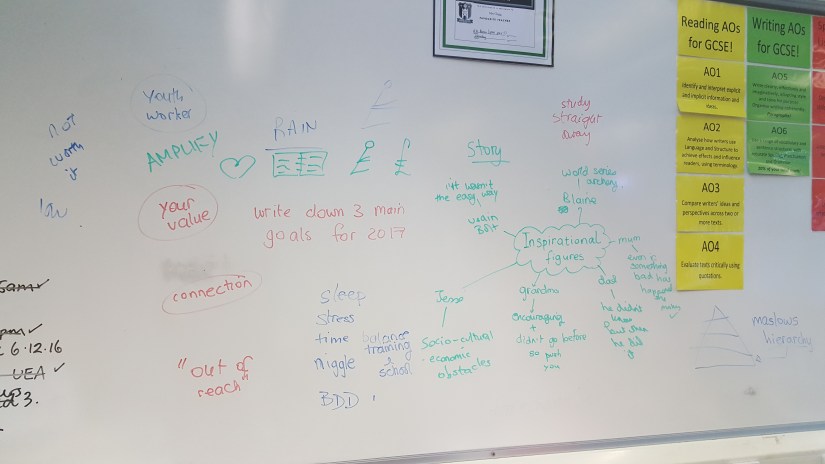 not
worth
it
low
Youth
worker
AMPLIFY
RAIN
£
£
your
value
write down 3 main
goals for 2017
connection
"out of
reach"
sleep
stress
time
niggle
BDD
balance
training
&
school
study
straight
away
Story
it wasn't
the easy way
usain
Bolt
world series
archery
Blaine
Inspirational
figures
mum
even if
something
bad has
happened
dad
he didn't
know
but then
he did
it
grandma
encouraging
+
didn't go before
so push
you
Jesse
Socio-cultural
economic
obstacles
maslows
hierarchy
6.12.16
UEA
3.
Reading AOs
for GCSE!
AO1
Identify and interpret explicit
and implicit information and
ideas.
AO2
Analyse how writers use
Language and Structure to
achieve effects and influence
readers, using terminology.
AO3
Compare writers' ideas and
perspectives across two or
more texts.
AO4
Evaluate texts critically using
quotations.
Writing AOs
for GCSE!
AO5
AO6